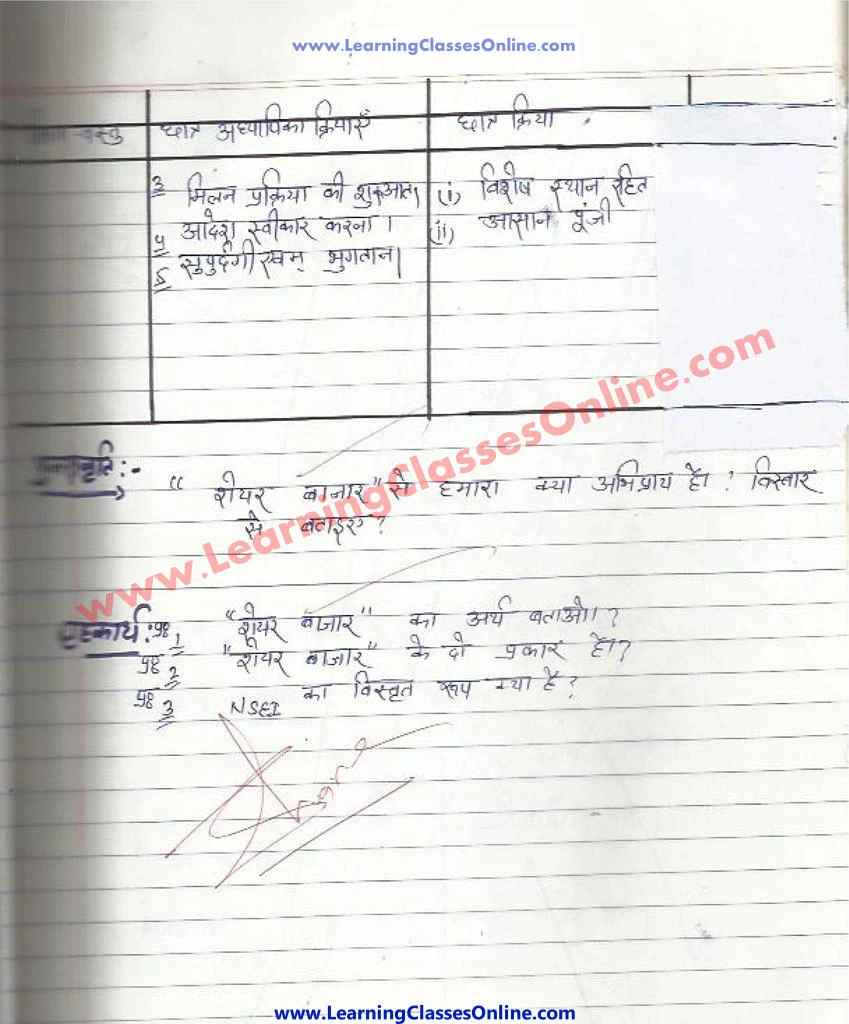 www.LearningClassesOnline.com
वस्तु छात्र अध्यापिका क्रियाएँ छात्र क्रिया
3 मिलन प्रक्रिया की शुरुआत। (i) विशेष स्थान रहित
4 आदेश स्वीकार करना। (ii) आसान पूंजी
5 सुपुर्दगी एवम् भुगतान।
पुनरावृति:-
"शेयर बाजार" से हमारा क्या अभिप्राय है। ? विस्तार
से बताइए?
www.LearningClassesOnline.com
गृहकार्य: प्र॰ 1 "शेयर बाजार" का अर्थ बताओ।?
प्र॰ 2 "शेयर बाजार" के दो प्रकार है।?
प्र॰ 3 NSEI का विस्तृत रूप क्या है?
www.LearningClassesOnline.com